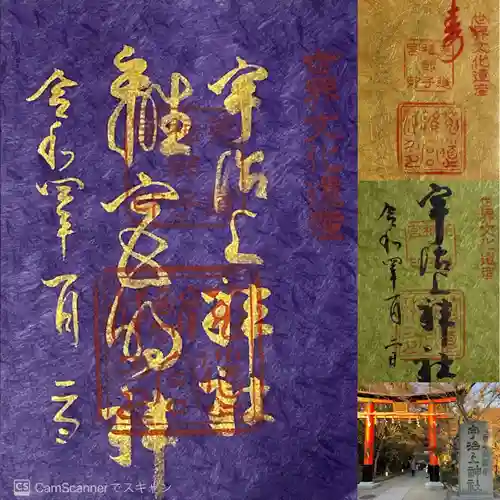 世界文化遺産
宇治上神社
離宮大明神
令和四年一月二日
CS CamScannerでスキャン
世界文化遺産
寿
世界文化遺産
宇治上神社
令和四年一月二日
宇治上神社